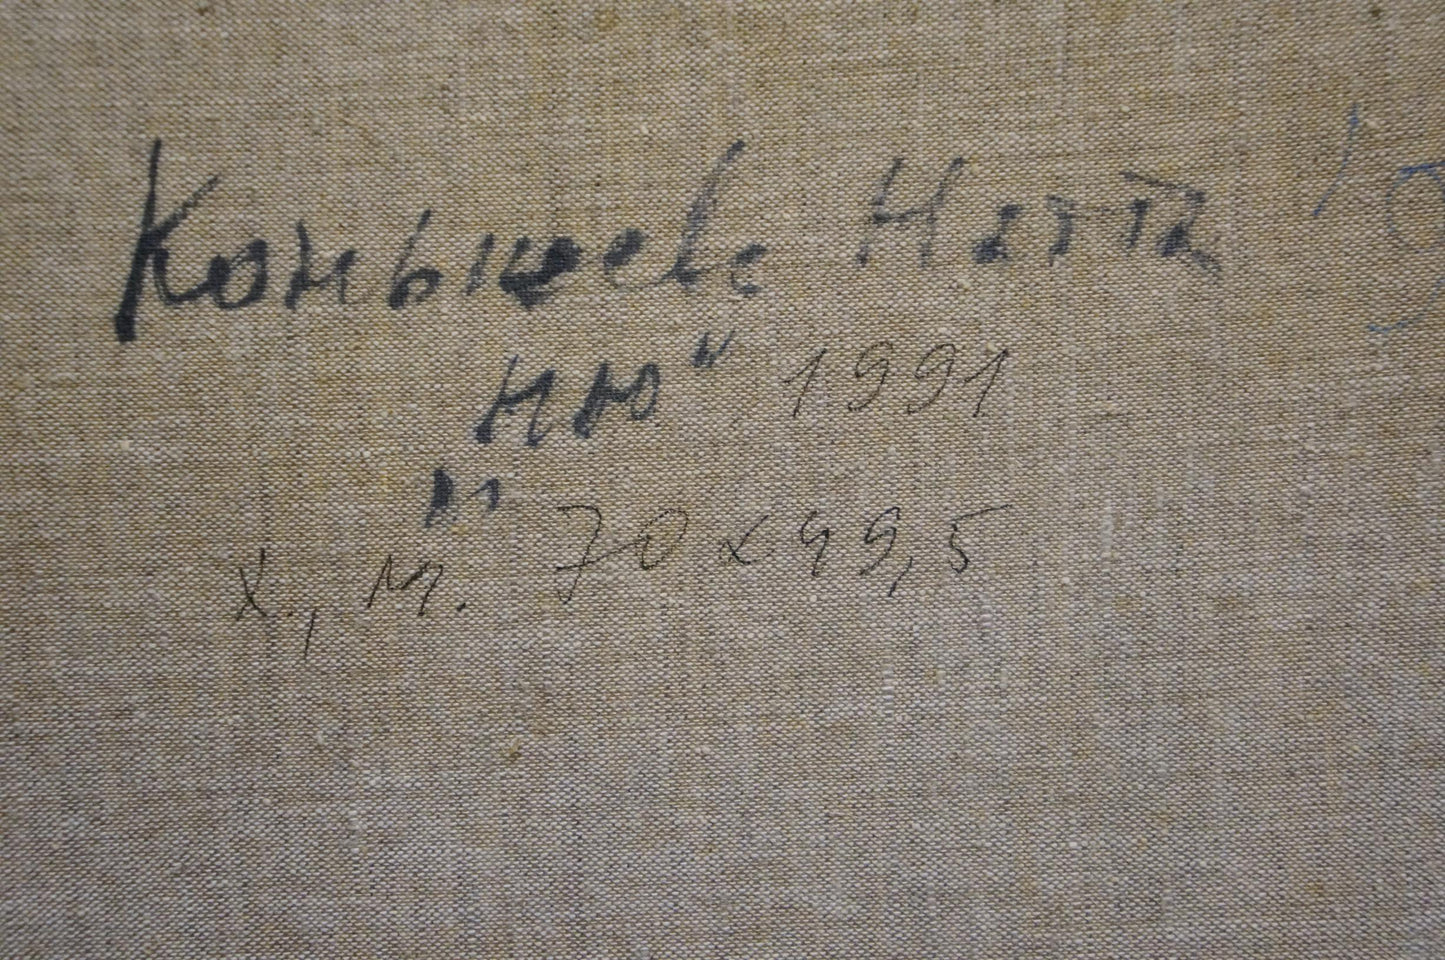 Коньшева Натта
"Ню" 1991
х., м. 70 x 49,5